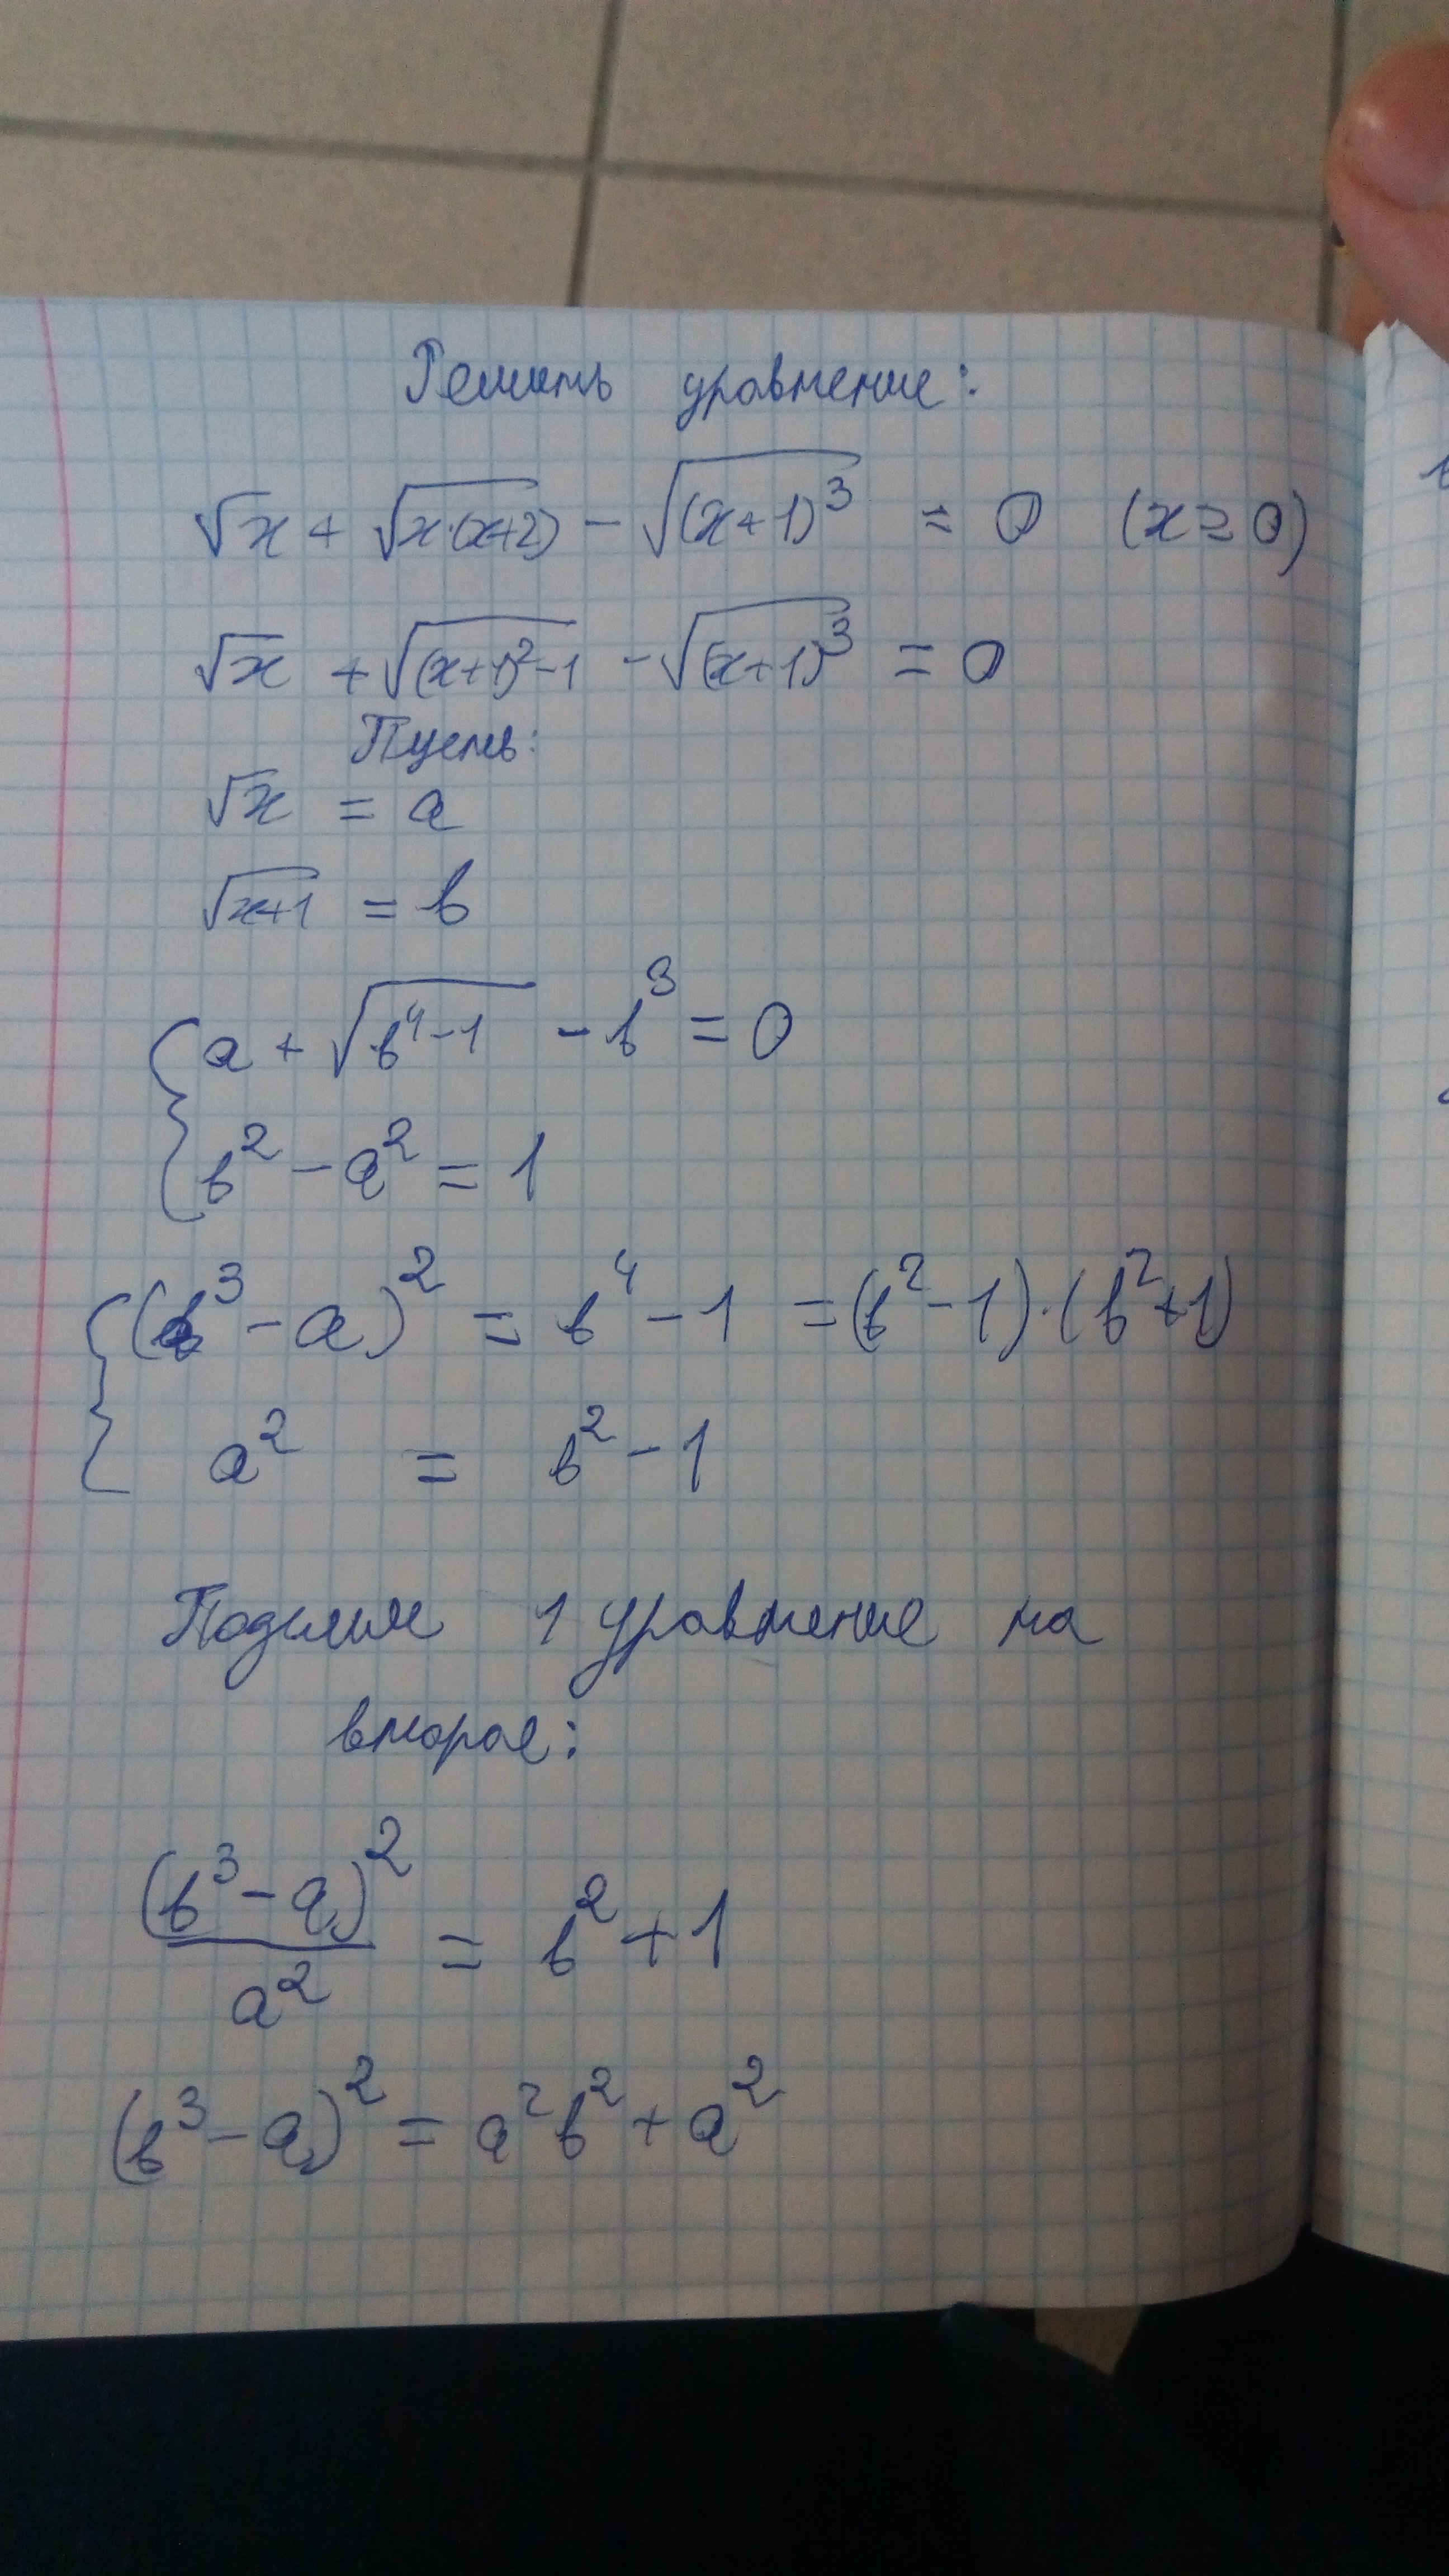 Решить уравнение:
√x + √x·(x+2) − √(x+1)³ = 0 (x ≥ 0)
√x + √(x+1)²−1 − √(x+1)³ = 0
Пусть:
√x = a
√x+1 = b
a + √b⁴−1 − b³ = 0
b² − a² = 1
(b³ − a)² = b⁴ − 1 = (b² − 1)·(b² + 1)
a² = b² − 1
Поделим 1 уравнение на
второе:
(b³ − a)² / a² = b² + 1
(b³ − a)² = a²b² + a²